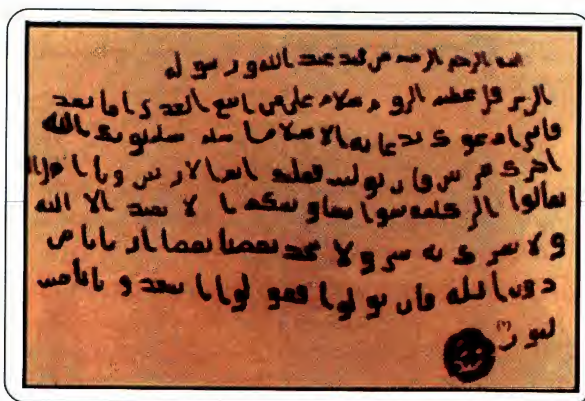 بسم الله الرحمن الرحيم من محمد عبد الله ورسوله
الى هرقل عظيم الروم سلام على من اتبع الهدى اما بعد
فانى ادعوك بدعاية الاسلام اسلم تسلم يوتك الله
اجرك مرتين فان توليت فعليك اثم الاريسين ويا اهل
تعالوا الى كلمة سوا بيننا وبينكم ا لا نعبد الا الله
ولا نشرك به شيا ولا يتخذ بعضنا بعضا اربابا من
دون الله فان تولوا فقولوا اشهدوا بانا مسـ
لمون (١)